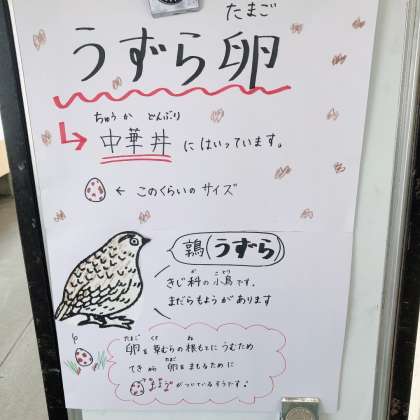 たまご
うずら卵
ちゅうか どんぶり
中華丼にはいっています。
← このくらいのサイズ
鶉(うずら)
か ことり
きじ科の小鳥です。
まだらもようがあります
たまご くさ ね
卵を草むらの根もとにうむため
たまご
てきから卵をまもるために
がついているそうです!